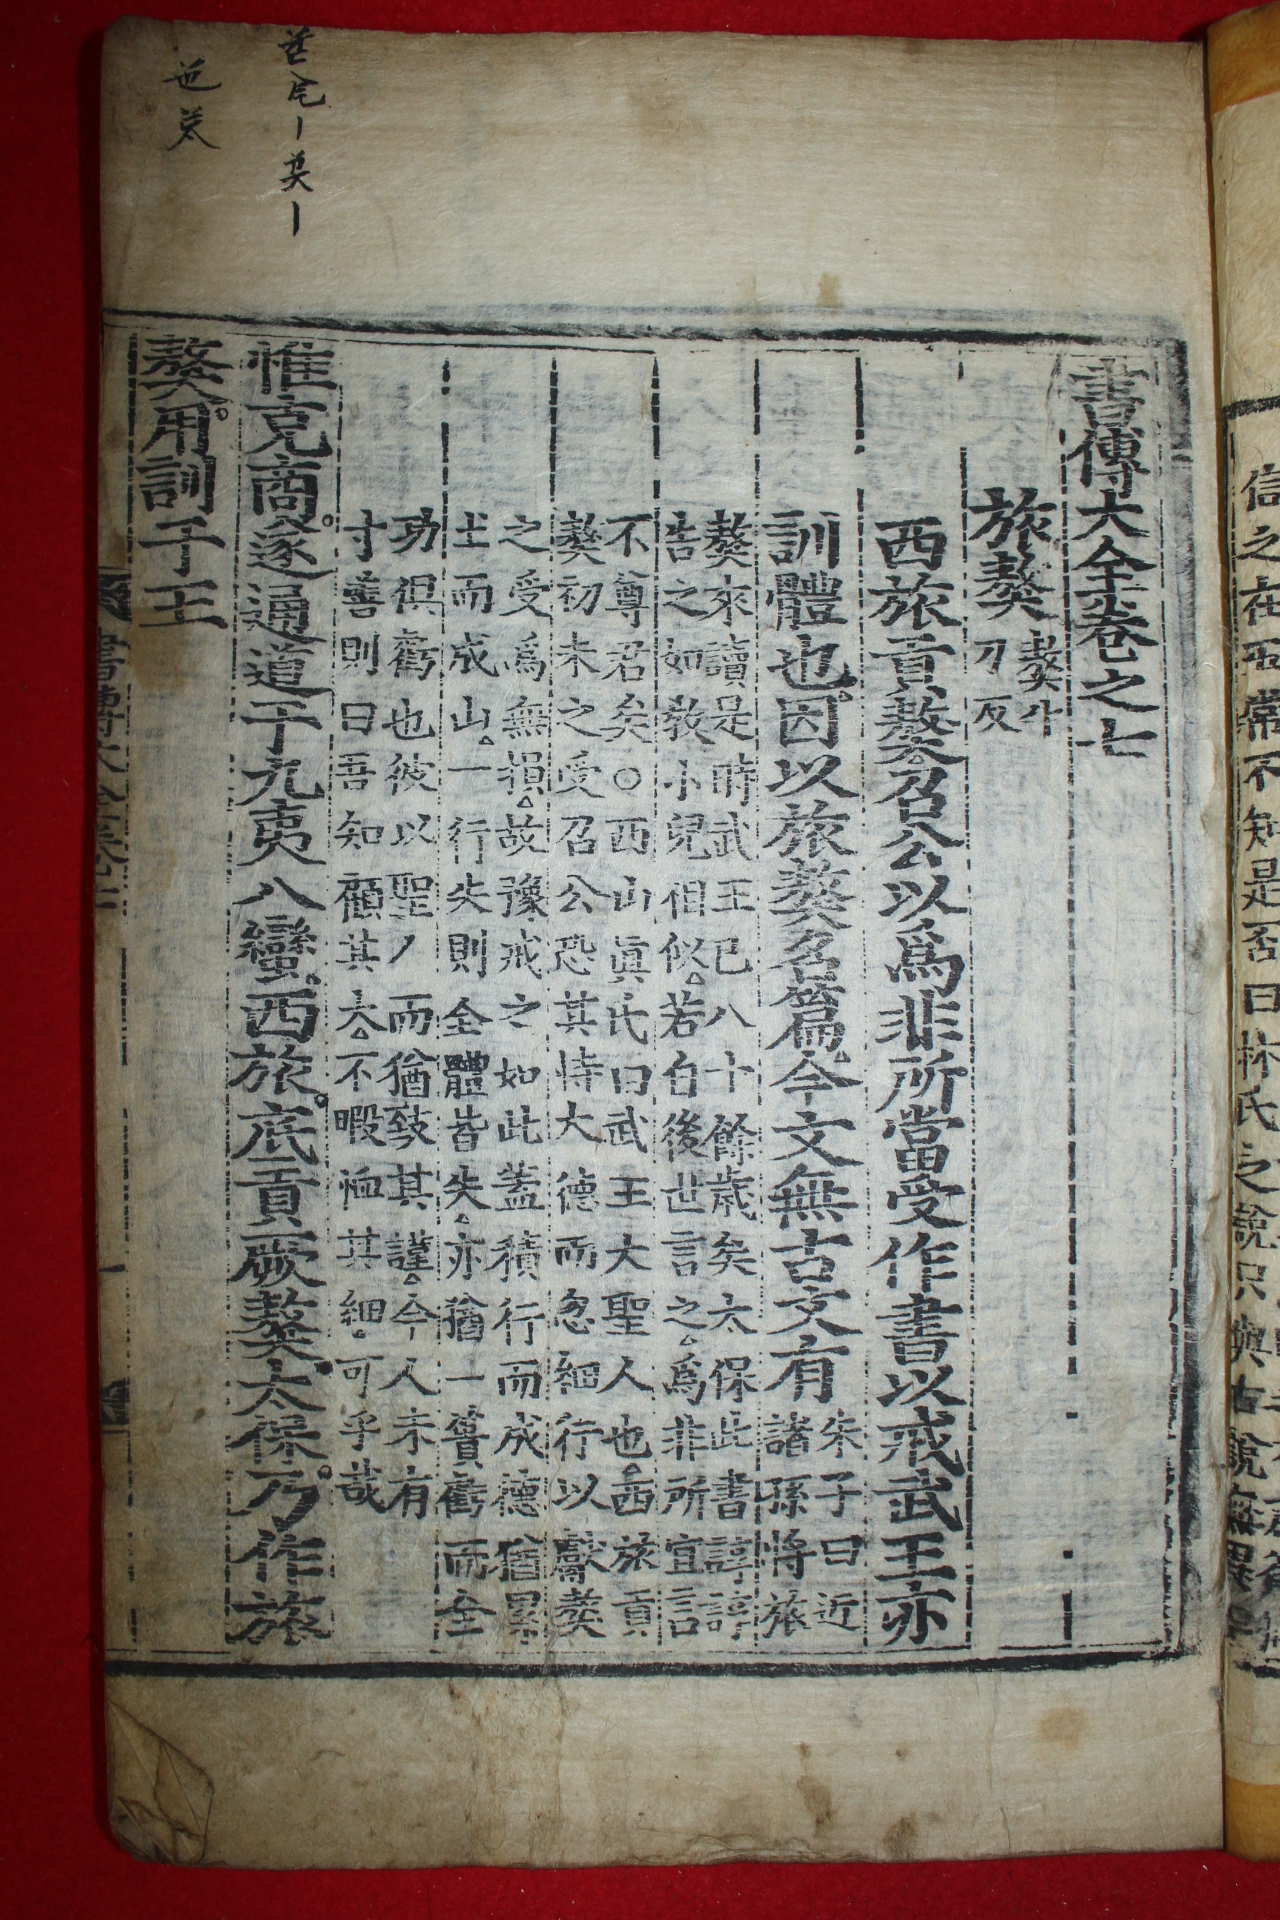 書傳大全卷之七
旅獒
獒牛
刀反
西旅貢獒召公以爲非所當受作書以戒武王亦
訓體也因以旅獒名篇今文無古文有
朱子曰近
諸孫將旅
獒來讀是時武王已八十餘歲矣太保此書諄諄
告之如敎小兒相似若自後世言之爲非所宜言
不尊君矣○西山眞氏曰武王大聖人也西旅貢
獒初未之受召公恐其恃大德而忽細行以獻獒
之受爲無損故豫戒之如此蓋積行而成德猶累
土而成山一行失則全體皆失亦猶一簣虧而全
功俱虧也彼以聖人而猶致其謹今人未有
寸善則曰吾知顧其大不暇恤其細可乎哉
惟克商遂通道于九夷八蠻西旅底貢厥獒太保乃作旅
獒用訓于王
書傳大全卷七 一
信之在不常不知是否曰林氏之說只與古說無異